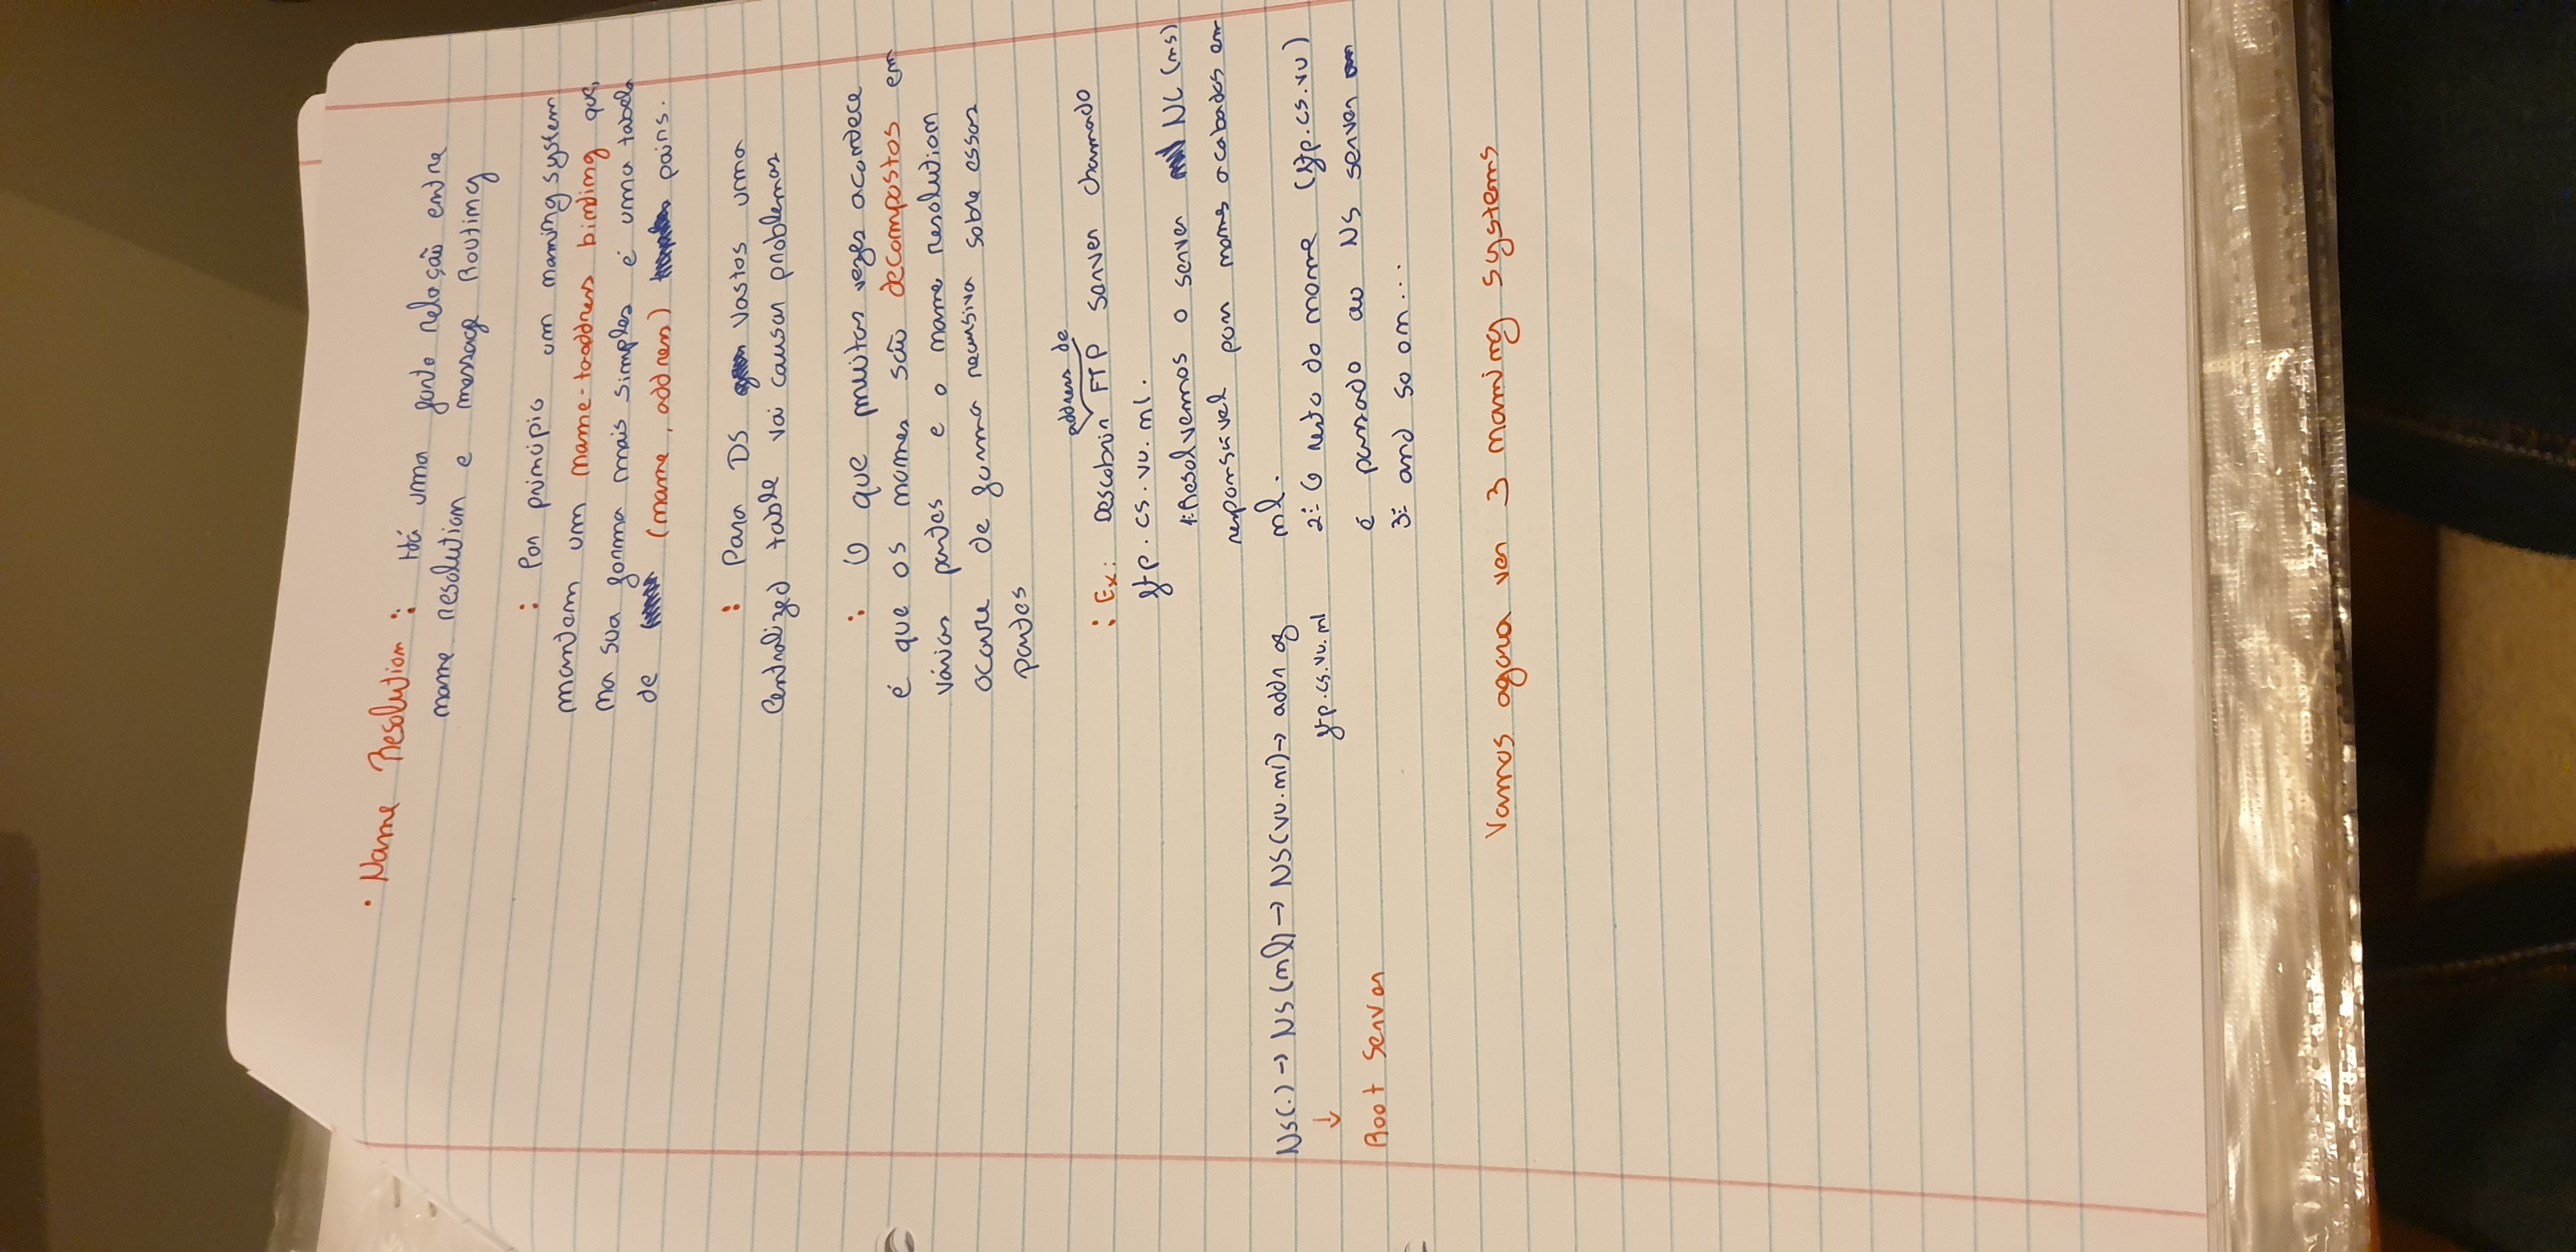 · Name Resolution : Há uma forte relação entre
name resolution e message Routing
: Por principio um naming system
mantem um name-to-address binding que,
na sua forma mais simples é uma tabela
de (name, address) pairs.
: Para DS vastos uma
Centralized table vai causar problemas
: O que muitas vezes acontece
é que os nomes são decompostos em
várias partes e o name resolution
ocorre de forma recursiva sobre essas
partes
address de
: Ex: Descobrir FTP server chamado
ftp.cs.vu.nl.
1: Resolvermos o server NL (ns)
responsável por nomes acabados em
nl.
2: O resto do nome (ftp.cs.vu)
é passado ao NS server
3: and so on...
NS(.) → NS(nl) → NS(vu.nl) → addr of
ftp.cs.vu.nl
↓
Root Server
Vamos agora ver 3 naming systems